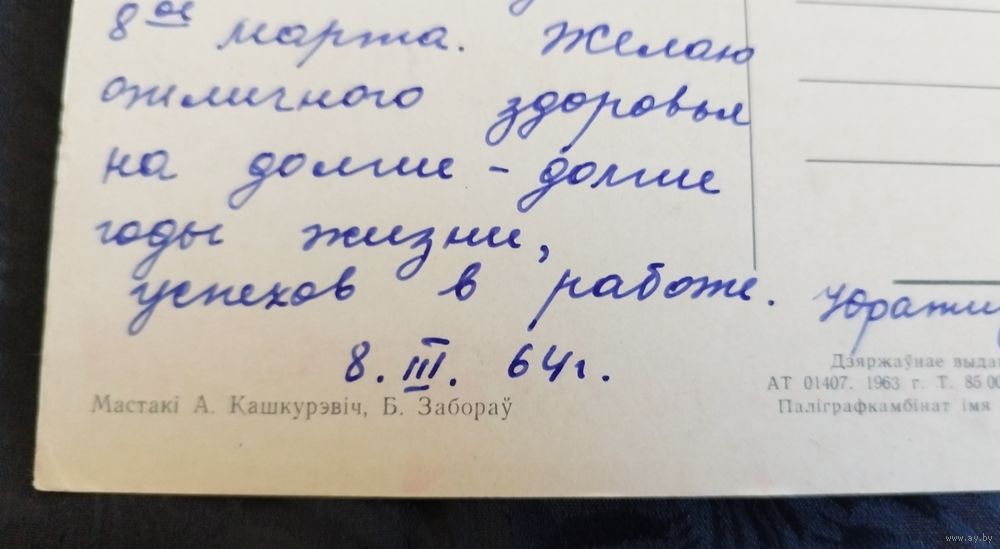 8ое марта. Желаю
отличного здоровья
на долгие - долгие
годы жизни,
успехов в работе.
8. III. 64г.
Мастакі А. Кашкурэвіч, Б. Забораў
Дзяржаўнае выда
АТ 01407. 1963 г. Т. 85 00
Паліграфкамбінат імя
www.ay.by